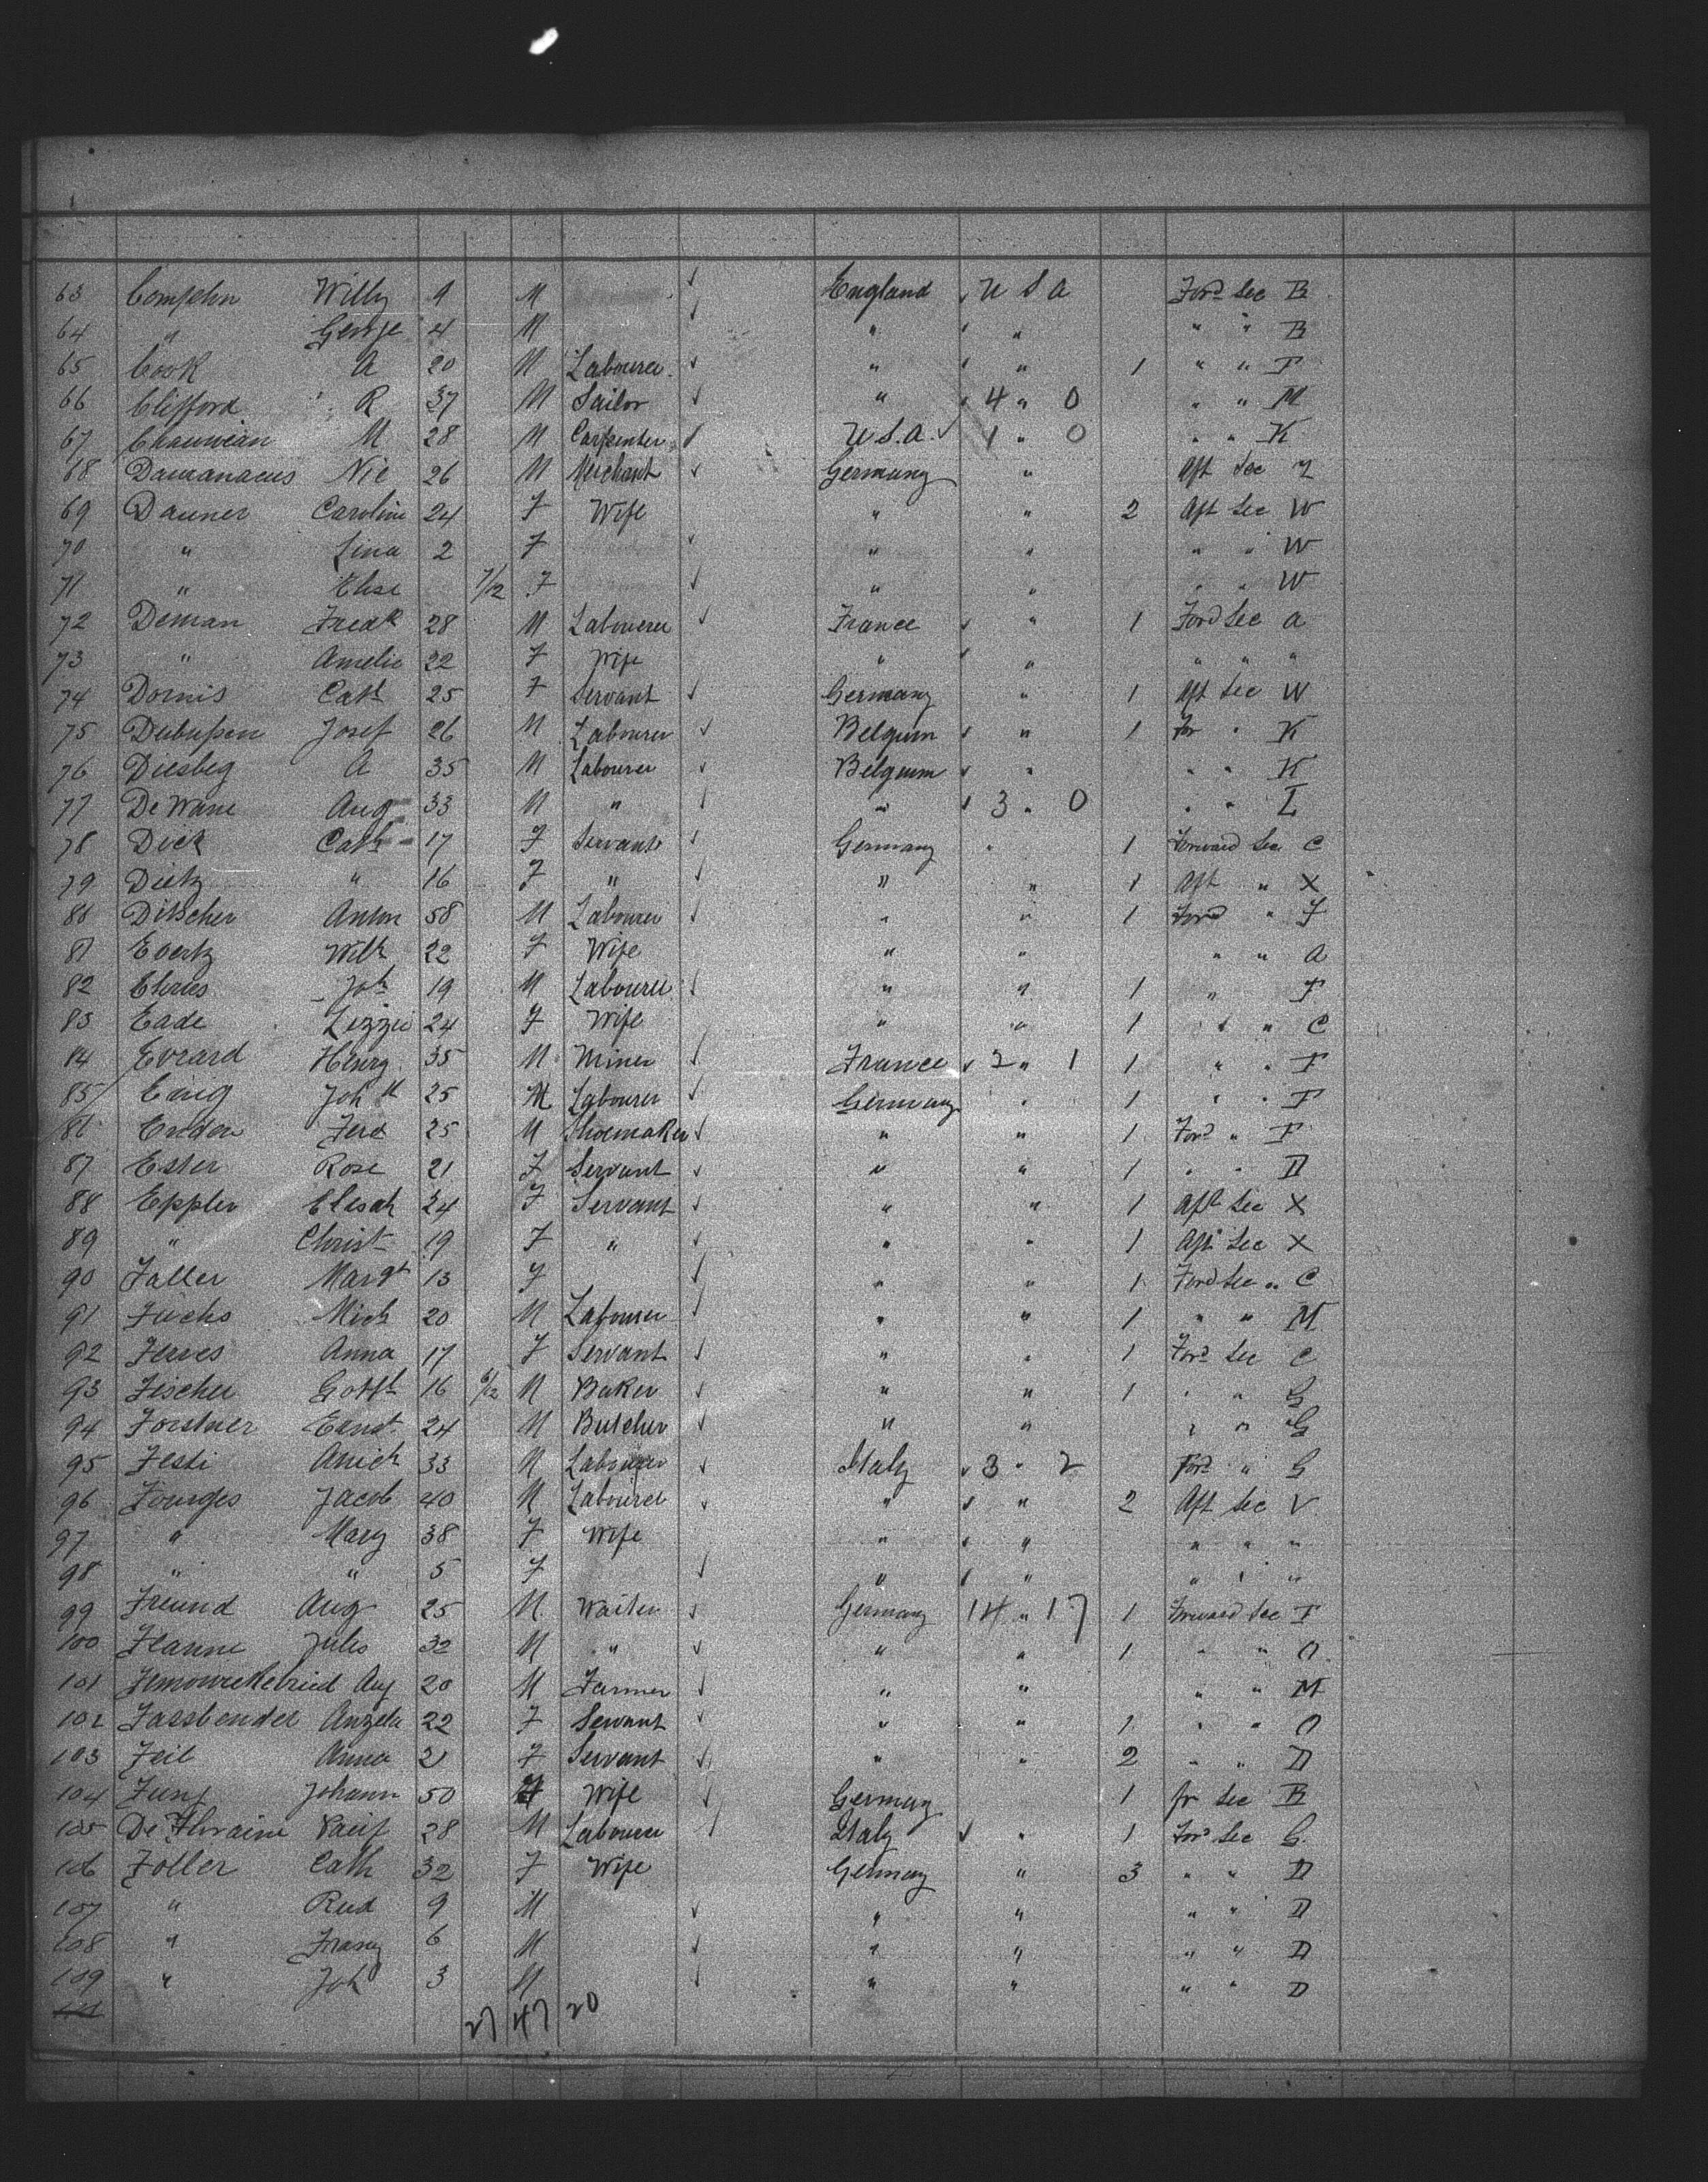 63 Complin Willy 9 M England U S A Ford Sec B
64 " George 4 M " " " " B
65 Cook A 20 M Labourer " " 1 " " F
66 Clifford R 37 M Sailor " 4 " 0 " " M
67 M 28 M Carpenter U.S.A. 1 " 0 " " K
68 Nic 26 M Merchant Germany " Aft Sec
69 Dauner Caroline 24 F Wife " " 2 Aft Sec W
70 " Lina 2 F " " " " W
71 " Elise 7/12 F " " " " W
72 Deman 28 M Labourer France " 1 Ford Sec A
73 " Amelie 22 F Wife " " " " "
74 Dornis Cath 25 F Servant Germany " 1 Aft Sec W
75 Josef 26 M Labourer Belgium " 1 For " K
76 A 35 M Labourer Belgium " " " K
77 De Wane Aug 33 M " " 3 " 0 " " L
78 Dick Cath 17 F Servant Germany " 1 Forward Sec C
79 Dietz " 16 F " " " 1 Aft " X
80 Ditscher Anton 58 M Labourer " " 1 Ford " F
81 Evertz Wilh 22 F Wife " " " " A
82 Joh 19 M Labourer " " 1 " F
83 Eade Lizzie 24 F Wife " " 1 " " C
84 Evrard 35 M Miner France 2 " 1 1 " " F
85 Joh 25 M Labourer Germany " 1 " " F
86 Enden Ferd 25 M Shoemaker " " 1 Ford " F
87 Ester Rose 21 F Servant " " 1 " " D
88 Eppler Elisah 24 F Servant " " 1 Aft Sec X
89 " Christ 19 F " " " 1 Aft Sec X
90 Faller Margt 13 F " " 1 Ford Sec " C
91 Fuchs Mich 20 M Labourer " " 1 " " M
92 Ferves Anna 17 F Servant " " 1 Ford Sec C
93 Fischer Gottl 16 6/12 M Baker " " 1 " " G
94 Forstner Ernst 24 M Butcher " " " " G
95 Festi 33 M Labourer Italy 3 " 2 Ford " G
96 Jacob 40 M Labourer " " 2 Aft Sec V
97 " Mary 38 F Wife " " " " "
98 " " 5 F " " " " "
99 Freund Aug 25 M Waiter Germany 14 " 17 1 Forward Sec F
100 Jules 32 M " " " 1 " " O
101 Aug 20 M Farmer " " " " M
102 Fassbender Angela 22 F Servant " " 1 " " O
103 Feil Anna 21 F Servant " " 2 " " D
104 Johann 50 Wife Germany 1 fr Sec B
105 28 M Labourer Italy " 1 Ford Sec G
106 Foller Cath 32 F Wife Germany " 3 " " D
107 " Rud 9 M " " " " D
108 " Franz 6 M " " " " D
109 " Joh 3 M " " " " D
27 47 20